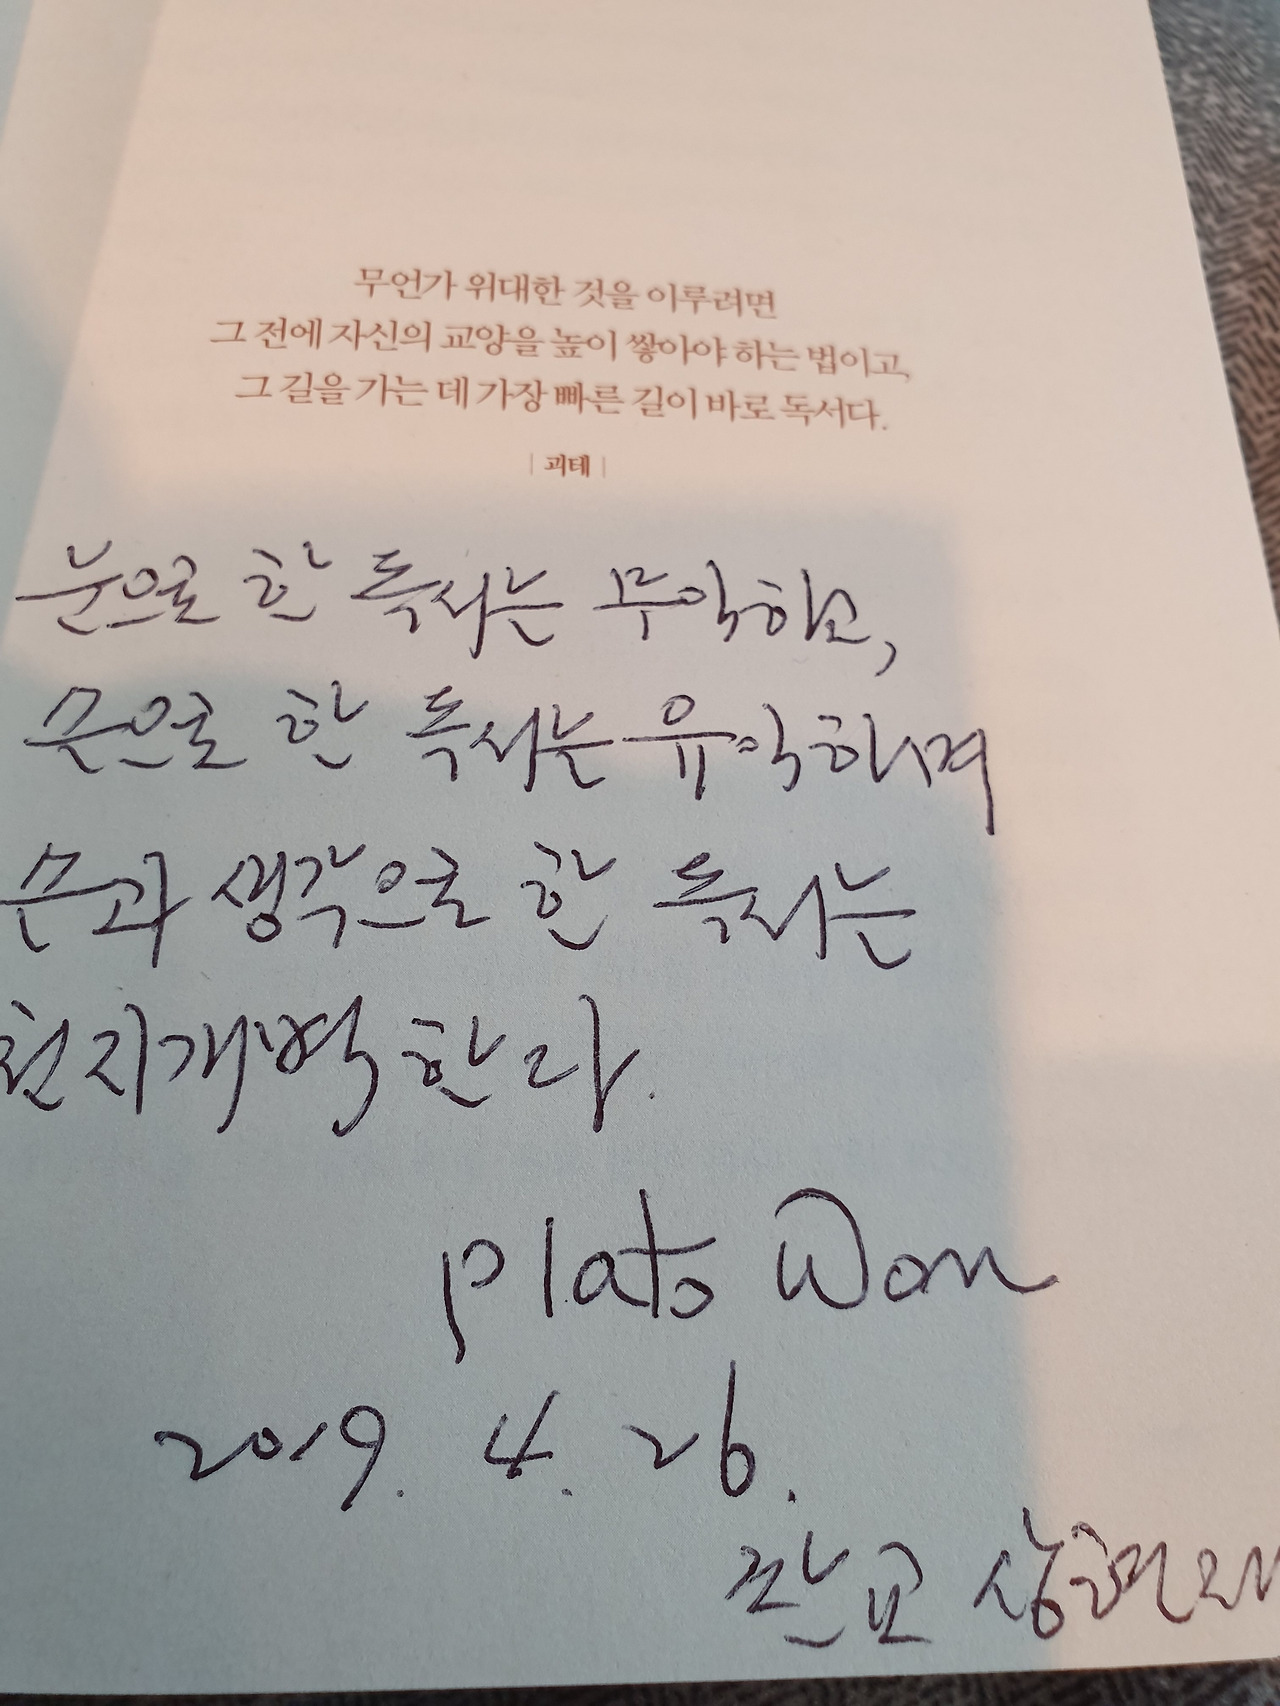 무언가 위대한 것을 이루려면
그 전에 자신의 교양을 높이 쌓아야 하는 법이고,
그 길을 가는 데 가장 빠른 길이 바로 독서다.
| 괴테 |
눈으로 한 독서는 무익하고,
손으로 한 독서는 유익하며
손과 생각으로 한 독서는
천지개벽 한다.
Plato Won
2019. 4. 26.
판교